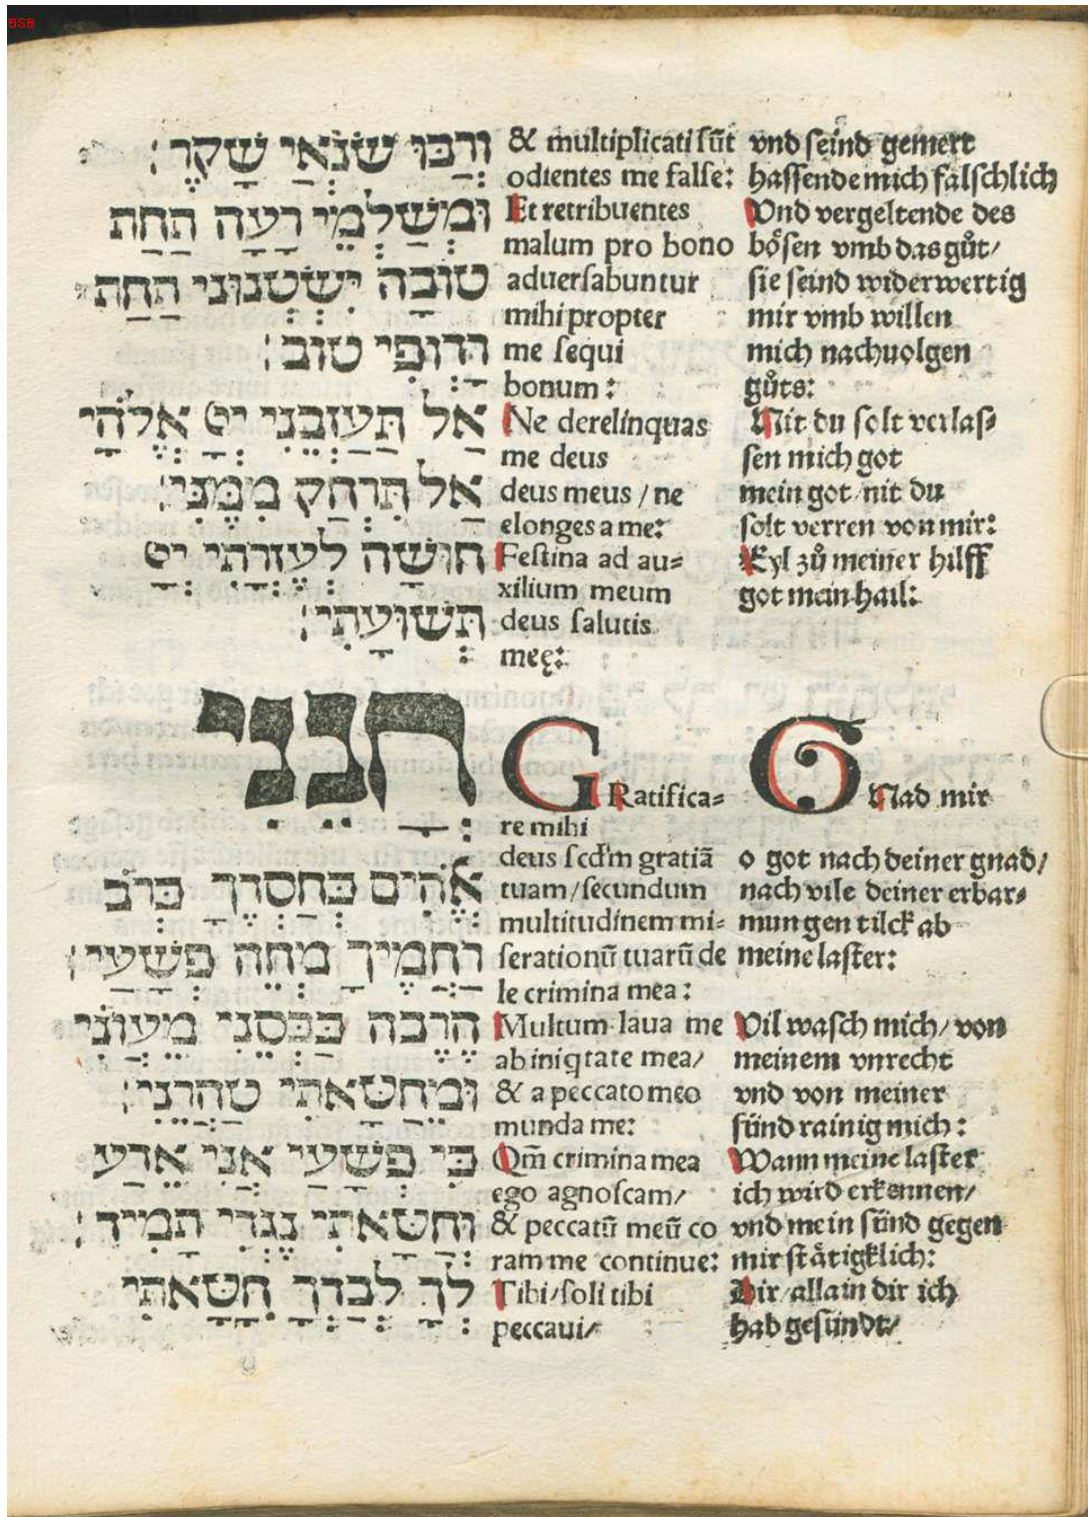 BSB
וְרַבּוּ שֹׂנְאַי שָׁקֶר׃
וּמְשַׁלְּמֵי רָעָה תַּחַת
טוֹבָה יִשְׂטְנוּנִי תַּחַת
רָדְופִי טוֹב׃
אַל תַּעַזְבֵנִי יְיָ אֱלֹהָי
אַל תִּרְחַק מִמֶּנִּי׃
חוּשָׁה לְעֶזְרָתִי יְיָ
תְּשׁוּעָתִי׃
חָנֵּנִי
אֱלֹהִים כְּחַסְדֶּךָ כְּרֹב
רַחֲמֶיךָ מְחֵה פְשָׁעָי׃
הֶרְבֵּה כַּבְּסֵנִי מֵעֲוֹנִי
וּמֵחַטָּאתִי טַהֲרֵנִי׃
כִּי פְשָׁעַי אֲנִי אֵדָע
וְחַטָּאתִי נֶגְדִּי תָמִיד׃
לְךָ לְבַדְּךָ חָטָאתִי
& multiplicati sūt
odientes me false:
Et retribuentes
malum pro bono
aduersabuntur
mihi propter
me sequi
bonum:
Ne derelinquas
me deus
deus meus / ne
elonges a me:
Festina ad au=
xilium meum
deus salutis
meę:
G Ratifica=
re mihi
deus scd'm gratiā
tuam/secundum
multitudinem mi=
serationū tuarū de
le crimina mea:
Multum laua me
ab iniqtate mea/
& a peccato meo
munda me:
Qm̄ crimina mea
ego agnoscam/
& peccatū meū co
ram me continue:
Tibi/soli tibi
peccaui/
vnd seind gemert
hassende mich fälschlich
Vnd vergeltende des
bösen vmb das gůt/
sie seind widerwertig
mir vmb willen
mich nachuolgen
gůts:
Nit du solt verlas=
sen mich got
mein got/nit du
solt verren von mir:
Eyl zů meiner hilff
got mein hail:
G Nad mir
o got nach deiner gnad/
nach vile deiner erbar=
mungen tilck ab
meine laster:
Vil wasch mich/von
meinem vnrecht
vnd von meiner
sünd rainig mich:
Wann meine laster
ich wird erkennen/
vnd mein sünd gegen
mir stätigklich:
Dir/allain dir ich
hab gesündt/